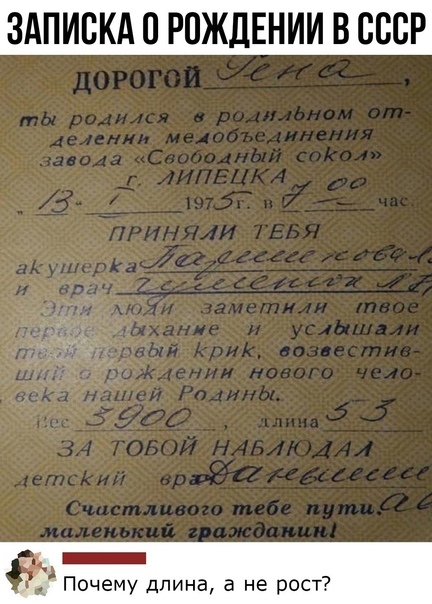 ЗАПИСКА О РОЖДЕНИИ В СССР
ДОРОГОЙ Гена,
ты родился в родильном от-
делении медобъединения
завода «Свободный сокол»
г. ЛИПЕЦКА
„ 13 - I 1975г. в 7 00 час.
ПРИНЯЛИ ТЕБЯ
акушерка
и врач
Эти люди заметили твое
первое дыхание и услышали
твой первый крик, возвестив-
ший о рождении нового чело-
века нашей Родины.
Вес 3900, длина 53
ЗА ТОБОЙ НАБЛЮДАЛ
детский врач
Счастливого тебе пути,
маленький гражданин!
Почему длина, а не рост?